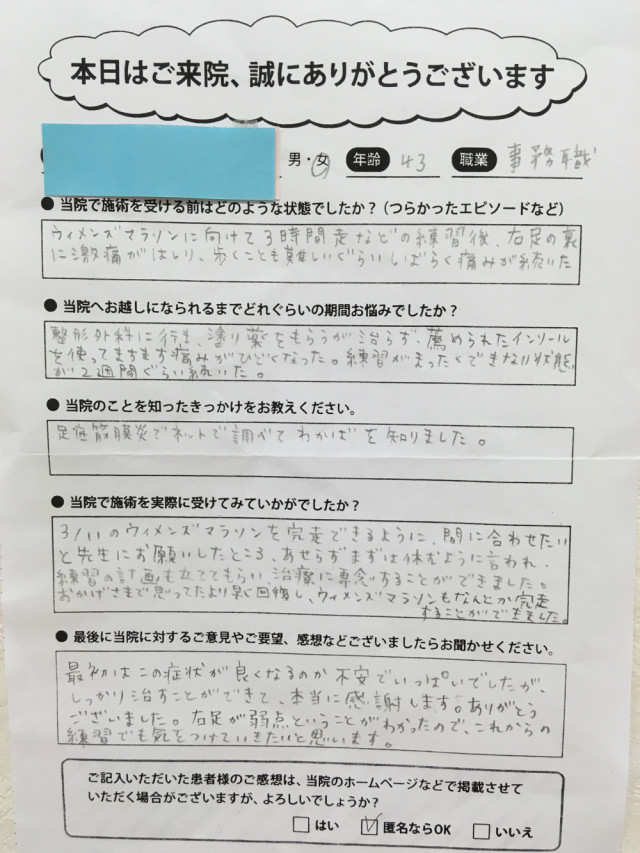 本日はご来院、誠にありがとうございます
男・女 年齢 43 職業 事務職
● 当院で施術を受ける前はどのような状態でしたか？（つらかったエピソードなど）
ウィメンズマラソンに向けて3時間走などの練習後、右足の裏
に激痛がはしり、歩くことも難しいぐらいしばらく痛みが続いた
● 当院へお越しになられるまでどれぐらいの期間お悩みでしたか？
整形外科に行き、塗り薬をもらうが治らず、薦められたインソール
を使ってますます痛みがひどくなった。練習がまったくできない状態
が2週間ぐらい続いた。
● 当院のことを知ったきっかけをお教えください。
足底筋膜炎でネットで調べてわかばを知りました。
● 当院で施術を実際に受けてみていかがでしたか？
3/11のウィメンズマラソンを完走できるように、間に合わせたい
と先生にお願いしたところ、あせらずまずは休むように言われ、
練習の計画も立ててもらい、治療に専念することができました。
おかげさまで思ってたより早く回復し、ウィメンズマラソンもなんとか完走
することができました。
● 最後に当院に対するご意見やご要望、感想などございましたらお聞かせください。
最初はこの症状が良くなるのか不安でいっぱいでしたが、
しっかり治すことができて、本当に感謝します。ありがとう
ございました。右足が弱点ということがわかったので、これからの
練習でも気をつけていきたいと思います。
ご記入いただいた患者様のご感想は、当院のホームページなどで掲載させて
いただく場合がございますが、よろしいでしょうか？
□ はい ☑ 匿名ならOK □ いいえ